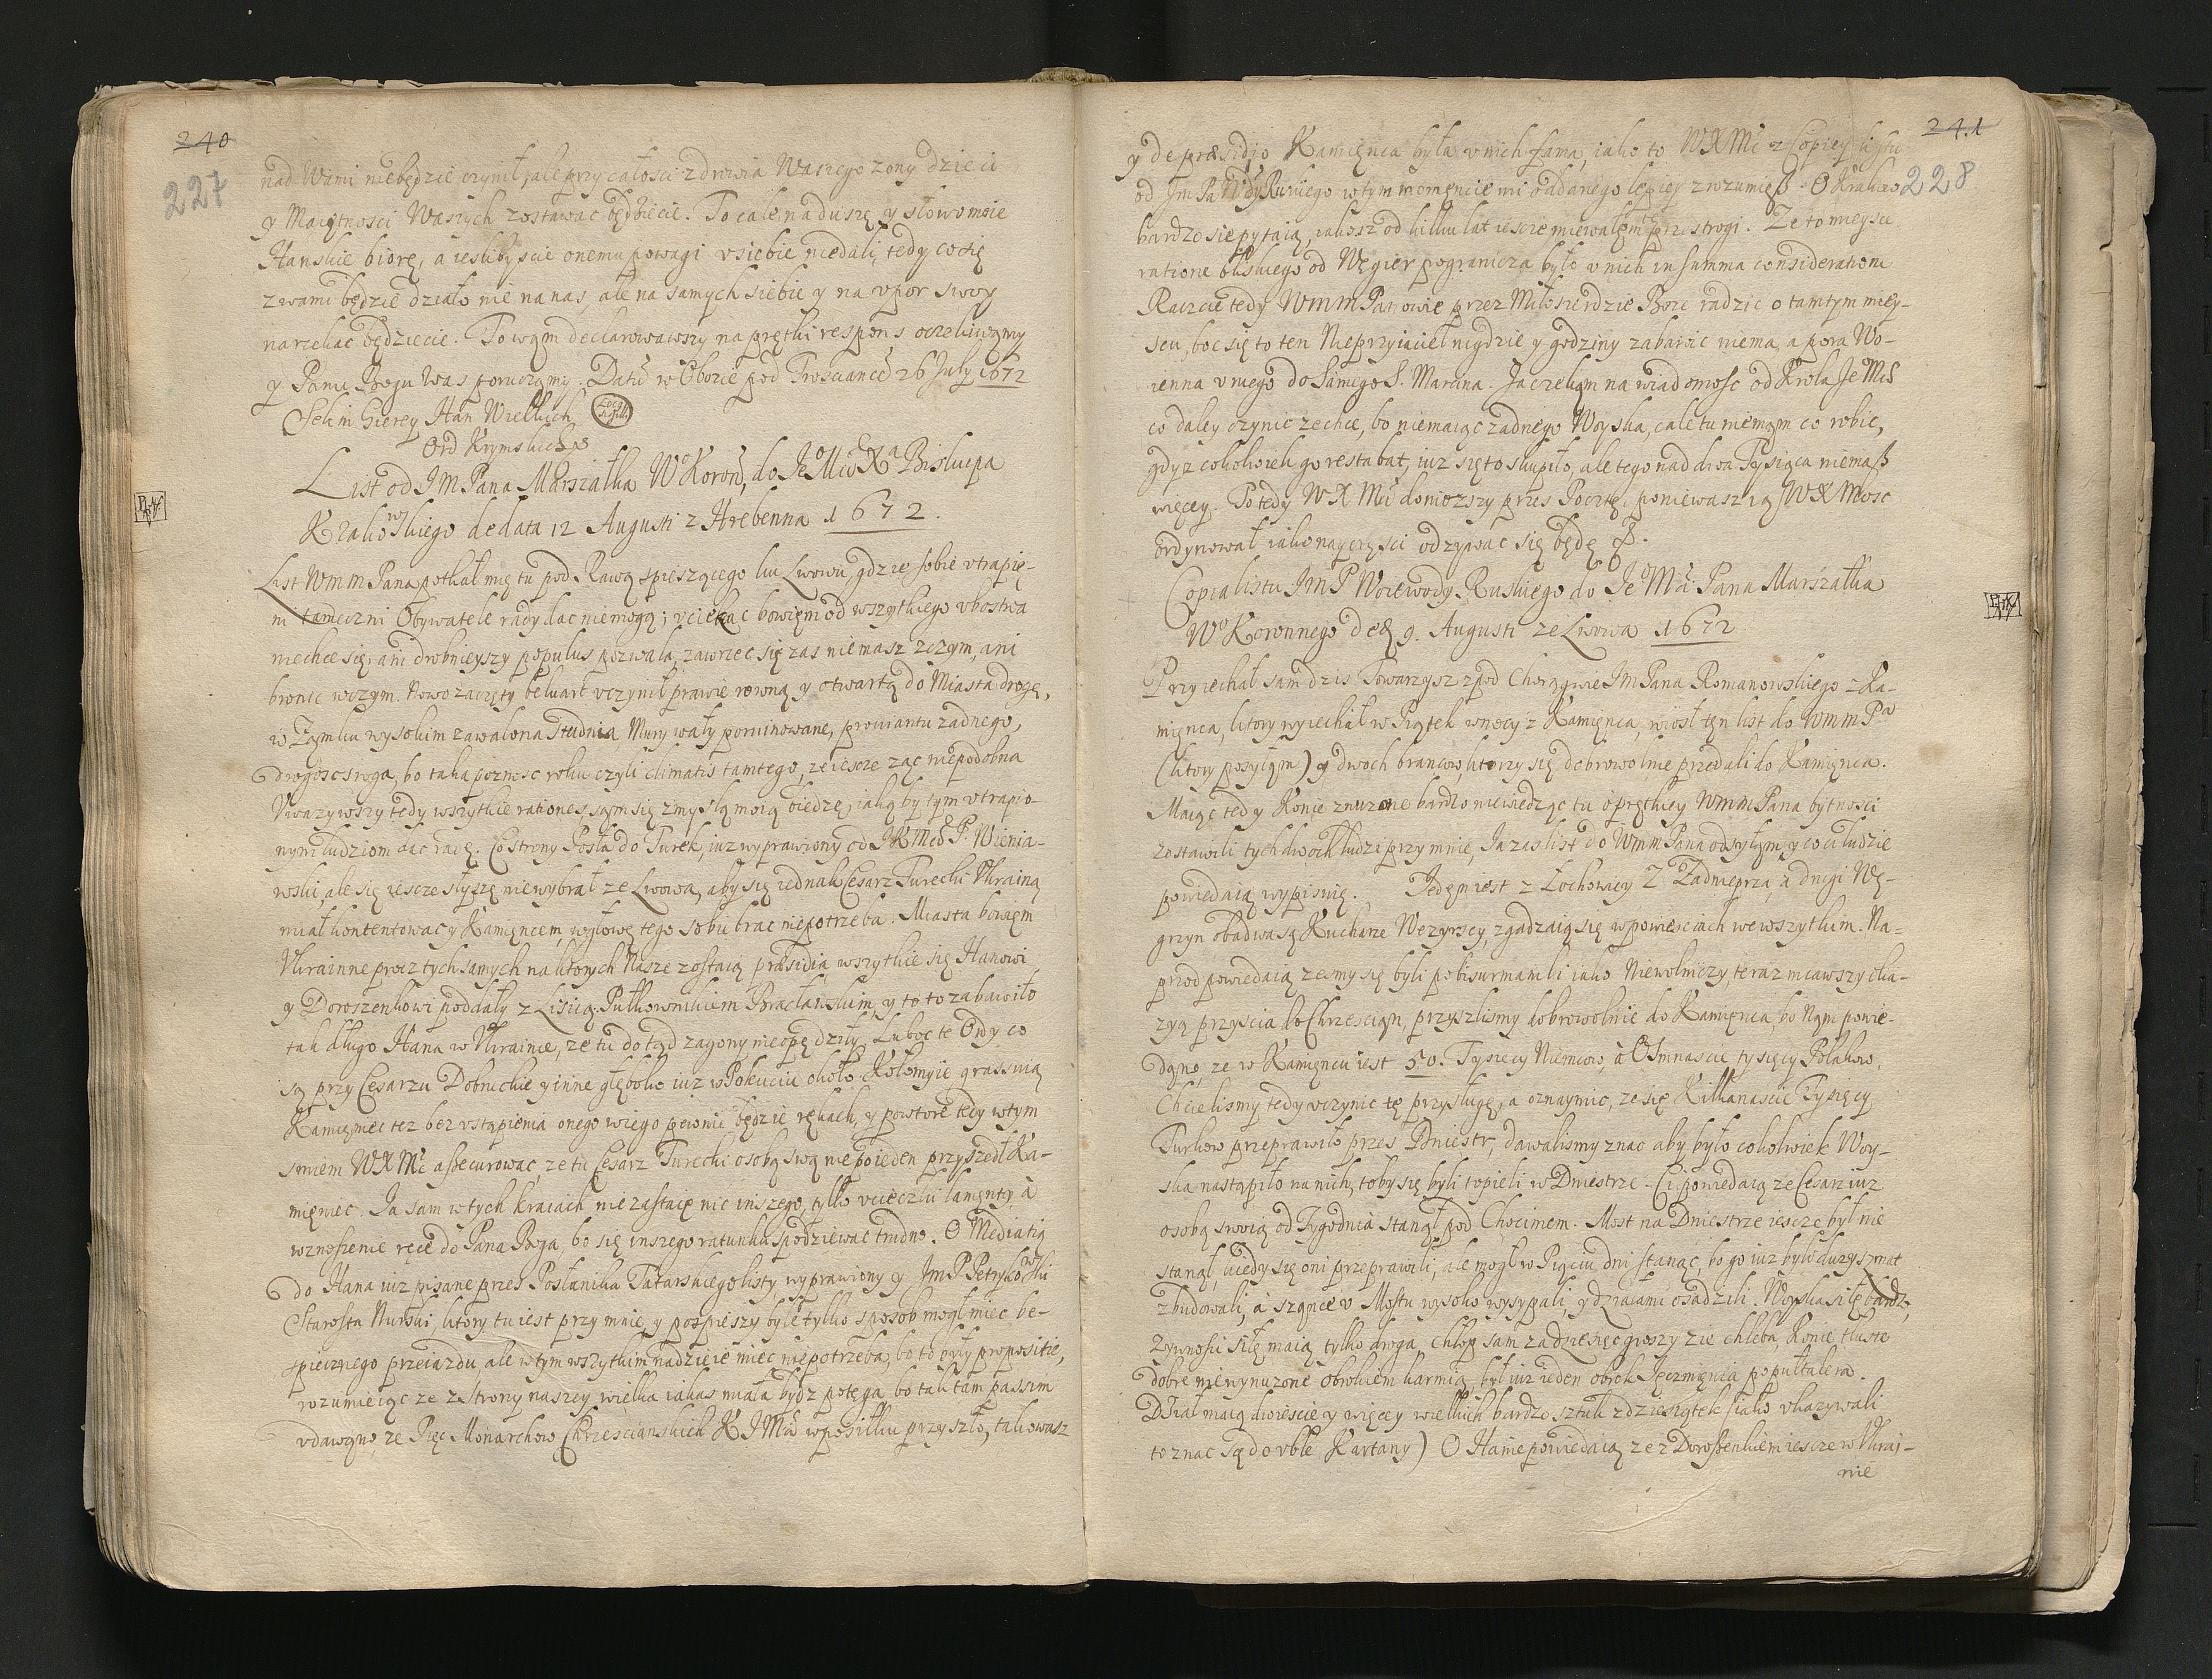 240
227
nad Wami niebędzie czynił, ale przy całosci zdrowia Waszego zony dzieci
y Maiętnosci Waszych zostawac będziecie. To cale na duszę y słowo moie
Hanskie biorę, a iesliby scie onemu powagi v siebie niedali, tedy co się
z wami będzie działo nie na nas, ale na samych siebie y na vpor swoy
narzekac będziecie. To wąm declarowawszy na prętki respons oczekiwamy
y Panu Bogu Was poruczamy. Datū w Obozie pod Trosciancē 26 July 1672
Selim Gierey Han Wielkich Locq Sigilli
Ord Krymskich
List od JM Pana Marszałka Wo Koroñ, do Jeo Mci Xa Biskupa
Krakowskiego de data 12 Augusti z Hrebenna 1672.
List WmmPana potkał mię tu pod Rawą spieszącego ku Lwowu, gdzie sobie vtrapię-
ni tameczni Obywatele rady dac niemogą; vciekac bowiem od wszytkiego vbostwa
niechce się, ani drobnieyszy populus pozwala, zawrzec się zas niemasz z czym, ani
bronic w czym. Nowo zaczęty beluart vczynił prawie rowną y otwartą do Miasta drogę,
w Zamku wysokim zawalona studnia, Mury wały poruinowane, prowiantu zadnego,
drogosc sroga, bo taka poznosc roku czyli climatis tamtego, ze iescze ząc niepodobna
Vwazywszy tedy wszytkie rationes, sąm się zmyslą moią biedzę, iaką by tym vtrapio-
nym ludziom dac radę. Co strony Posła do Turek, iuz wyprawiony od JKMci P. Wienia-
wski, ale się iescze słyszę niewybrał ze Lwowa, aby się iednak Cesarz Turecki Vkrainą
miał kontentowac y Kamięncem, w głowę tego sobie brac niepotrzeba. Miasta bowiem
Vkrainne procz tych samych na ktorych Nasze zostaią præsidia wszytkie się Hanowi
y Doroszenkowi poddały z Lisicą Pułkownikiem Bracławskim, y to to zabawiło
tak długo Hana w Vkrainie, ze tu dotąd zagony nieopędziły. Luboc te Ordy co
są przy Cesarzu Dobruckie y inne głęboko iuz w Pokuciu około Kołomyie grassuią
Kamięniec tez bez vstąpienia onego w iego pewnie będzie rękach, y powtore tedy w tym
smiem WXMc assecurowac, ze tu Cesarz Turecki osobą swą nie po ieden przyszedł Ka-
mięniec. Ja sam w tych kraiach nie zastaię nic inszego, tylko vcieczki lamęnty, à
wznoszenie ręce do Pana Boga, bo się inszego ratunku spodziewac trudno. O Mediatią
do Hana iuz pisane przes Posłanika Tatarskiego listy, wyprawiony y JmP Petrykowski
Starosta Nurski, ktory tu iest przy mnie, y pospieszy byle tylko sposob mogł miec be-
spiecznego przeiazdu, ale w tym wszytkim nadzieie miec niepotrzeba, bo to były propositie,
rozumieiąc ze z strony naszey wielka iakas miała bydz potęga, bo tak tam passim
vdawano, ze Pięc Monarchow Chrzescianskich KJMci w posiłku przyszło, takowasz

241
228
y de præsidio Kamięnca była v nich fama, iako to WXMc z Copiey listu
od Jm Pa Wdy Ruskiego w tym momencie mi oddanego lepiey zrozumiesz. O Krakow
bardzo się pytaią, iakosz od kilku lat iescze miewałem te przestrogi. Ze to mieysce
ratione bliskiego od Węgier pogranicza było v nich in summa consideratione
Raczcie tedy WmmPanowie przez Miłosierdzie Boze radzic o tamtym miey-
scu, boc się to ten Nieprzyiaciel nigdzie y godziny zabawic niema, a pora Wo-
ienna v niego do Samego S. Marcina. Ja czekąm na wiadomosc od Krola Jeo Mci
co daley czynic zechce, bo niemaiąc zadnego Woyska, cale tu niemąm co robic,
gdyz cokolwiek go restabat, iuz się to skupiło, ale tego nad dwa Tysiąca niemasz
więcey. Po tedy WXMc doniozszy przes Pocztę, poniewasz ią WXMosc
ordynował iako nayczęsci odzywac się będę
Copia listu JmP Woiewody Ruskiego do Jeo Mci Pana Marszałka
Wo Koronnego d 9. Augusti ze Lwowa 1672
Przyiechał sam dzis Towarzysz z pod Chorągwie JmPana Romanowskiego z Ka-
mięnca, ktory wyiechał w Piątek w nocy z Kamięnca, wiosł tęn list do WmmPa
(ktory posyłąm) y dwoch brancow, ktorzy się dobrowolnie przedali do Kamięnca.
Maiąc tedy Konie znuzone bardzo niewiedząc tu o prętkiey WmmPana bytnosci
zostawili tych dwoch ludzi przy mnie, Ja zas list do WmmPana odsyłąm, y co ci ludzie
powiedaią wypisuię. Jedęn iest z Łochowicy z Zadnieprza, a drugi Wę-
grzyn obadwa są Kucharze Wezyrscy, zgadzaią się w powiesciach we wszytkim. Na-
przod powiedaią zesmy się byli pobisurmanili iako Niewolniczy, teraz miawszy oka-
zyą przyscia do Chrzescian, przyszlismy dobrowolnie do Kamięnca, bo Nąm powie-
dąno, ze w Kamięncu iest 50. Tysięcy Niemcow, à Osmnascie tysięcy Polakow.
Chcielismy tedy vczynic tę przysługę, a oznaymic, ze się Kilkanascie Tysięcy
Turkow przeprawiło przes Dniestr, dawalismy znac aby było cokolwiek Woy-
ska nastąpiło na nich, toby się byli topieli w Dniestrze. Ci powiedaią ze Cesarz iuz
osobą swoią od Tygodnia stanął pod Chocimem. Most na Dniestrze iescze był nie
stanął, kiedy się oni przeprawili, ale mogł w Pięciu dni stanąc, bo go iuz byli duzy szmat
zbudowali, à sząnce v Mostu wysoko wysypali, y działami osadzili. Woyska siłę bardz,
zywnosci siłę maią, tylko droga, chłop sam za dziesięc groszy zie chleba, Konie tłuste
dobre niewynuzone obrokiem karmią, był iuz ieden obrok Jęczmięnia po pułtalera.
Dział maią dwiescie y więcey wielkich bardzo sztuk z dziesiątek (iako vkazywali
to znac są double Kartany) O Hanie powiedaią ze z Doroszenkiem iescze w Vkrai-
nie